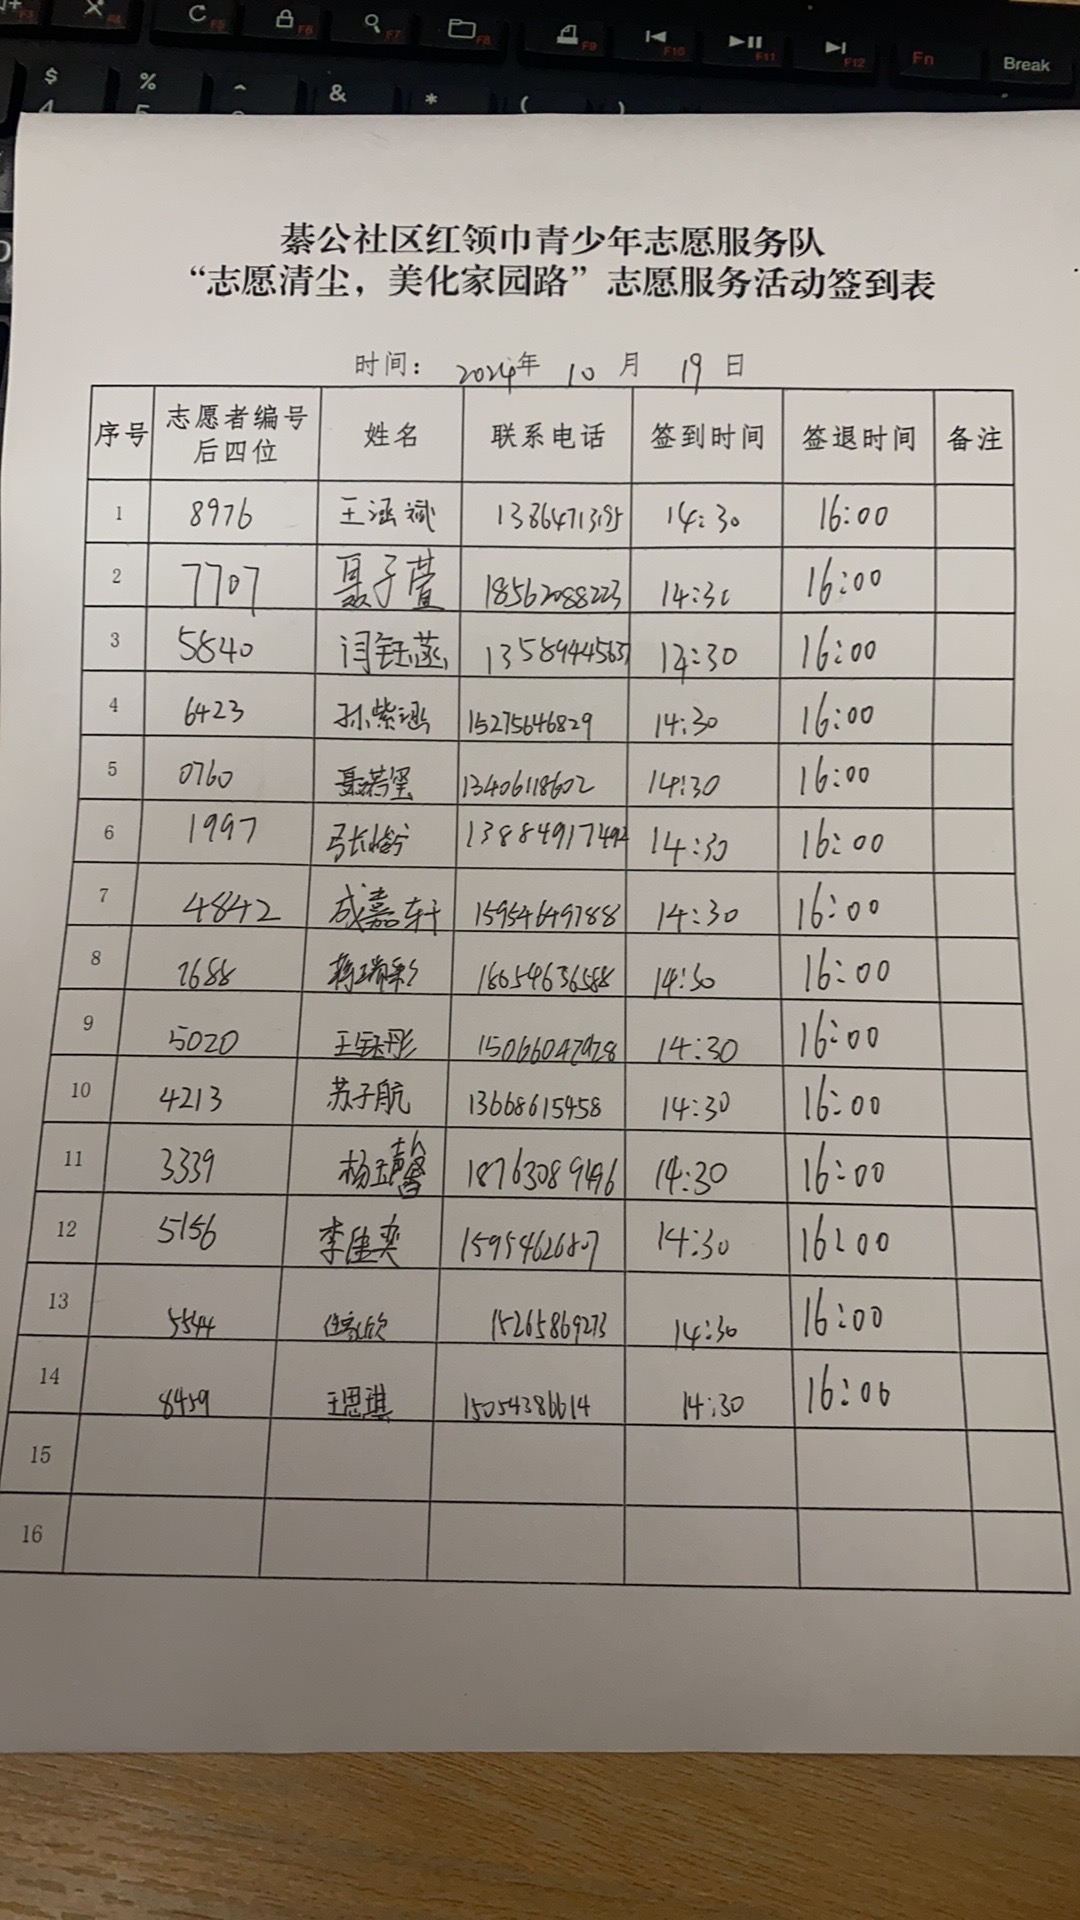 F5
F6
F7
F8
F9
F10
F11
F12
Fn
Break
$
%
&
*
(
)
綦公社区红领巾青少年志愿服务队
“志愿清尘，美化家园路”志愿服务活动签到表
时间： 2024年 10 月 19 日
序号 志愿者编号后四位 姓名 联系电话 签到时间 签退时间 备注
1 8976 王涵斌 13864713195 14:30 16:00
2 7707 聂子萱 18562088223 14:30 16:00
3 5840 闫钰菡 13589445637 14:30 16:00
4 6423 孙紫涵 15275646829 14:30 16:00
5 0760 聂若玺 13406118602 14:30 16:00
6 1997 13884917492 14:30 16:00
7 4842 成嘉轩 15954649788 14:30 16:00
8 2688 蒋瑞彩 18654636588 14:30 16:00
9 5020 王钰彤 15066047928 14:30 16:00
10 4213 苏子航 13668615458 14:30 16:00
11 3339 杨玉馨 18763089496 14:30 16:00
12 5156 李佳奕 15954626807 14:30 16:00
13 5544 15265869273 14:30 16:00
14 8459 王思琪 15054386614 14:30 16:00
15
16